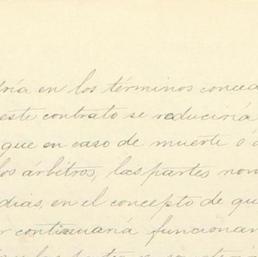 dría en los términos conced
este contrato se reduciría
que en caso de muerte ó
los árbitros, las partes nom
dias, en el concepto de qu
continuaría funcionan